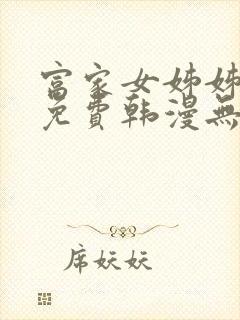 富家女姊姊
免費韩漫無
席妖妖